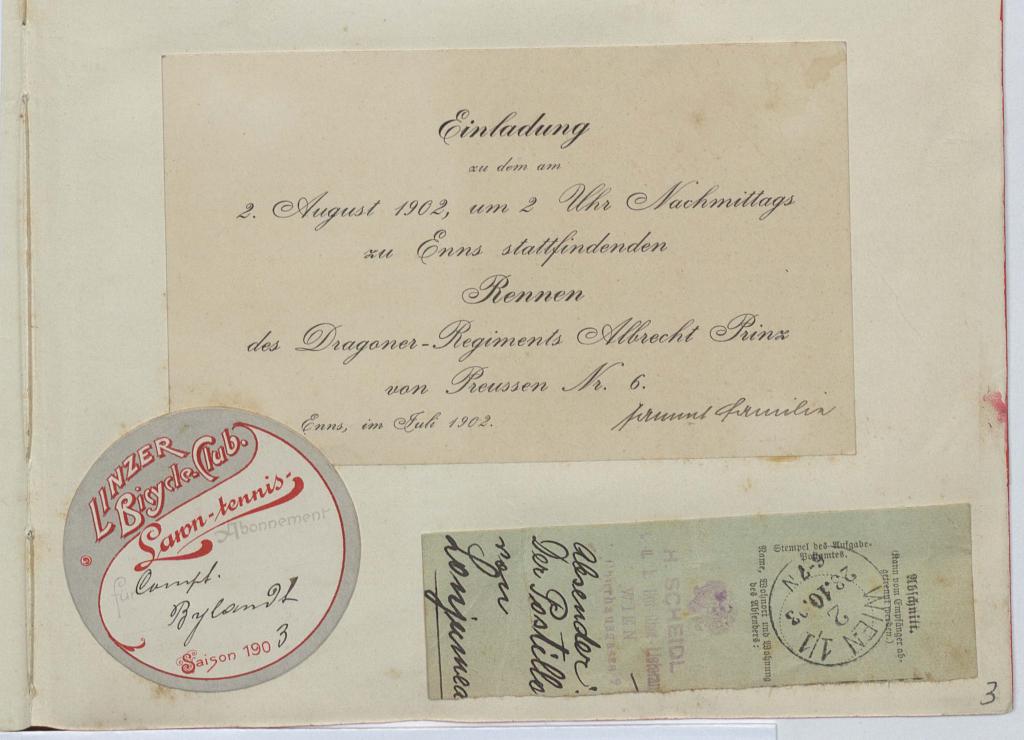 Einladung
zu dem am
2. August 1902, um 2 Uhr Nachmittags
zu Enns stattfindenden
Rennen
des Dragoner-Regiments Albrecht Prinz
von Preussen Nr. 6.
Enns, im Juli 1902.
sammt Familie
LINZER
Bicycle-Club.
Lawn-tennis-
Abonnement
für
Comft.
Bylandt
Saison 1903
Abschnitt.
(Kann vom Empfänger ab-
getrennt werden.)
Stempel des Aufgabe-
Postamtes.
WIEN 1/1
6-7 N
Name, Wohnort und Wohnung
des Absenders:
H. SCHEIDL
WIEN
Absender:
Der Postillon
von
Lonjumeau
3